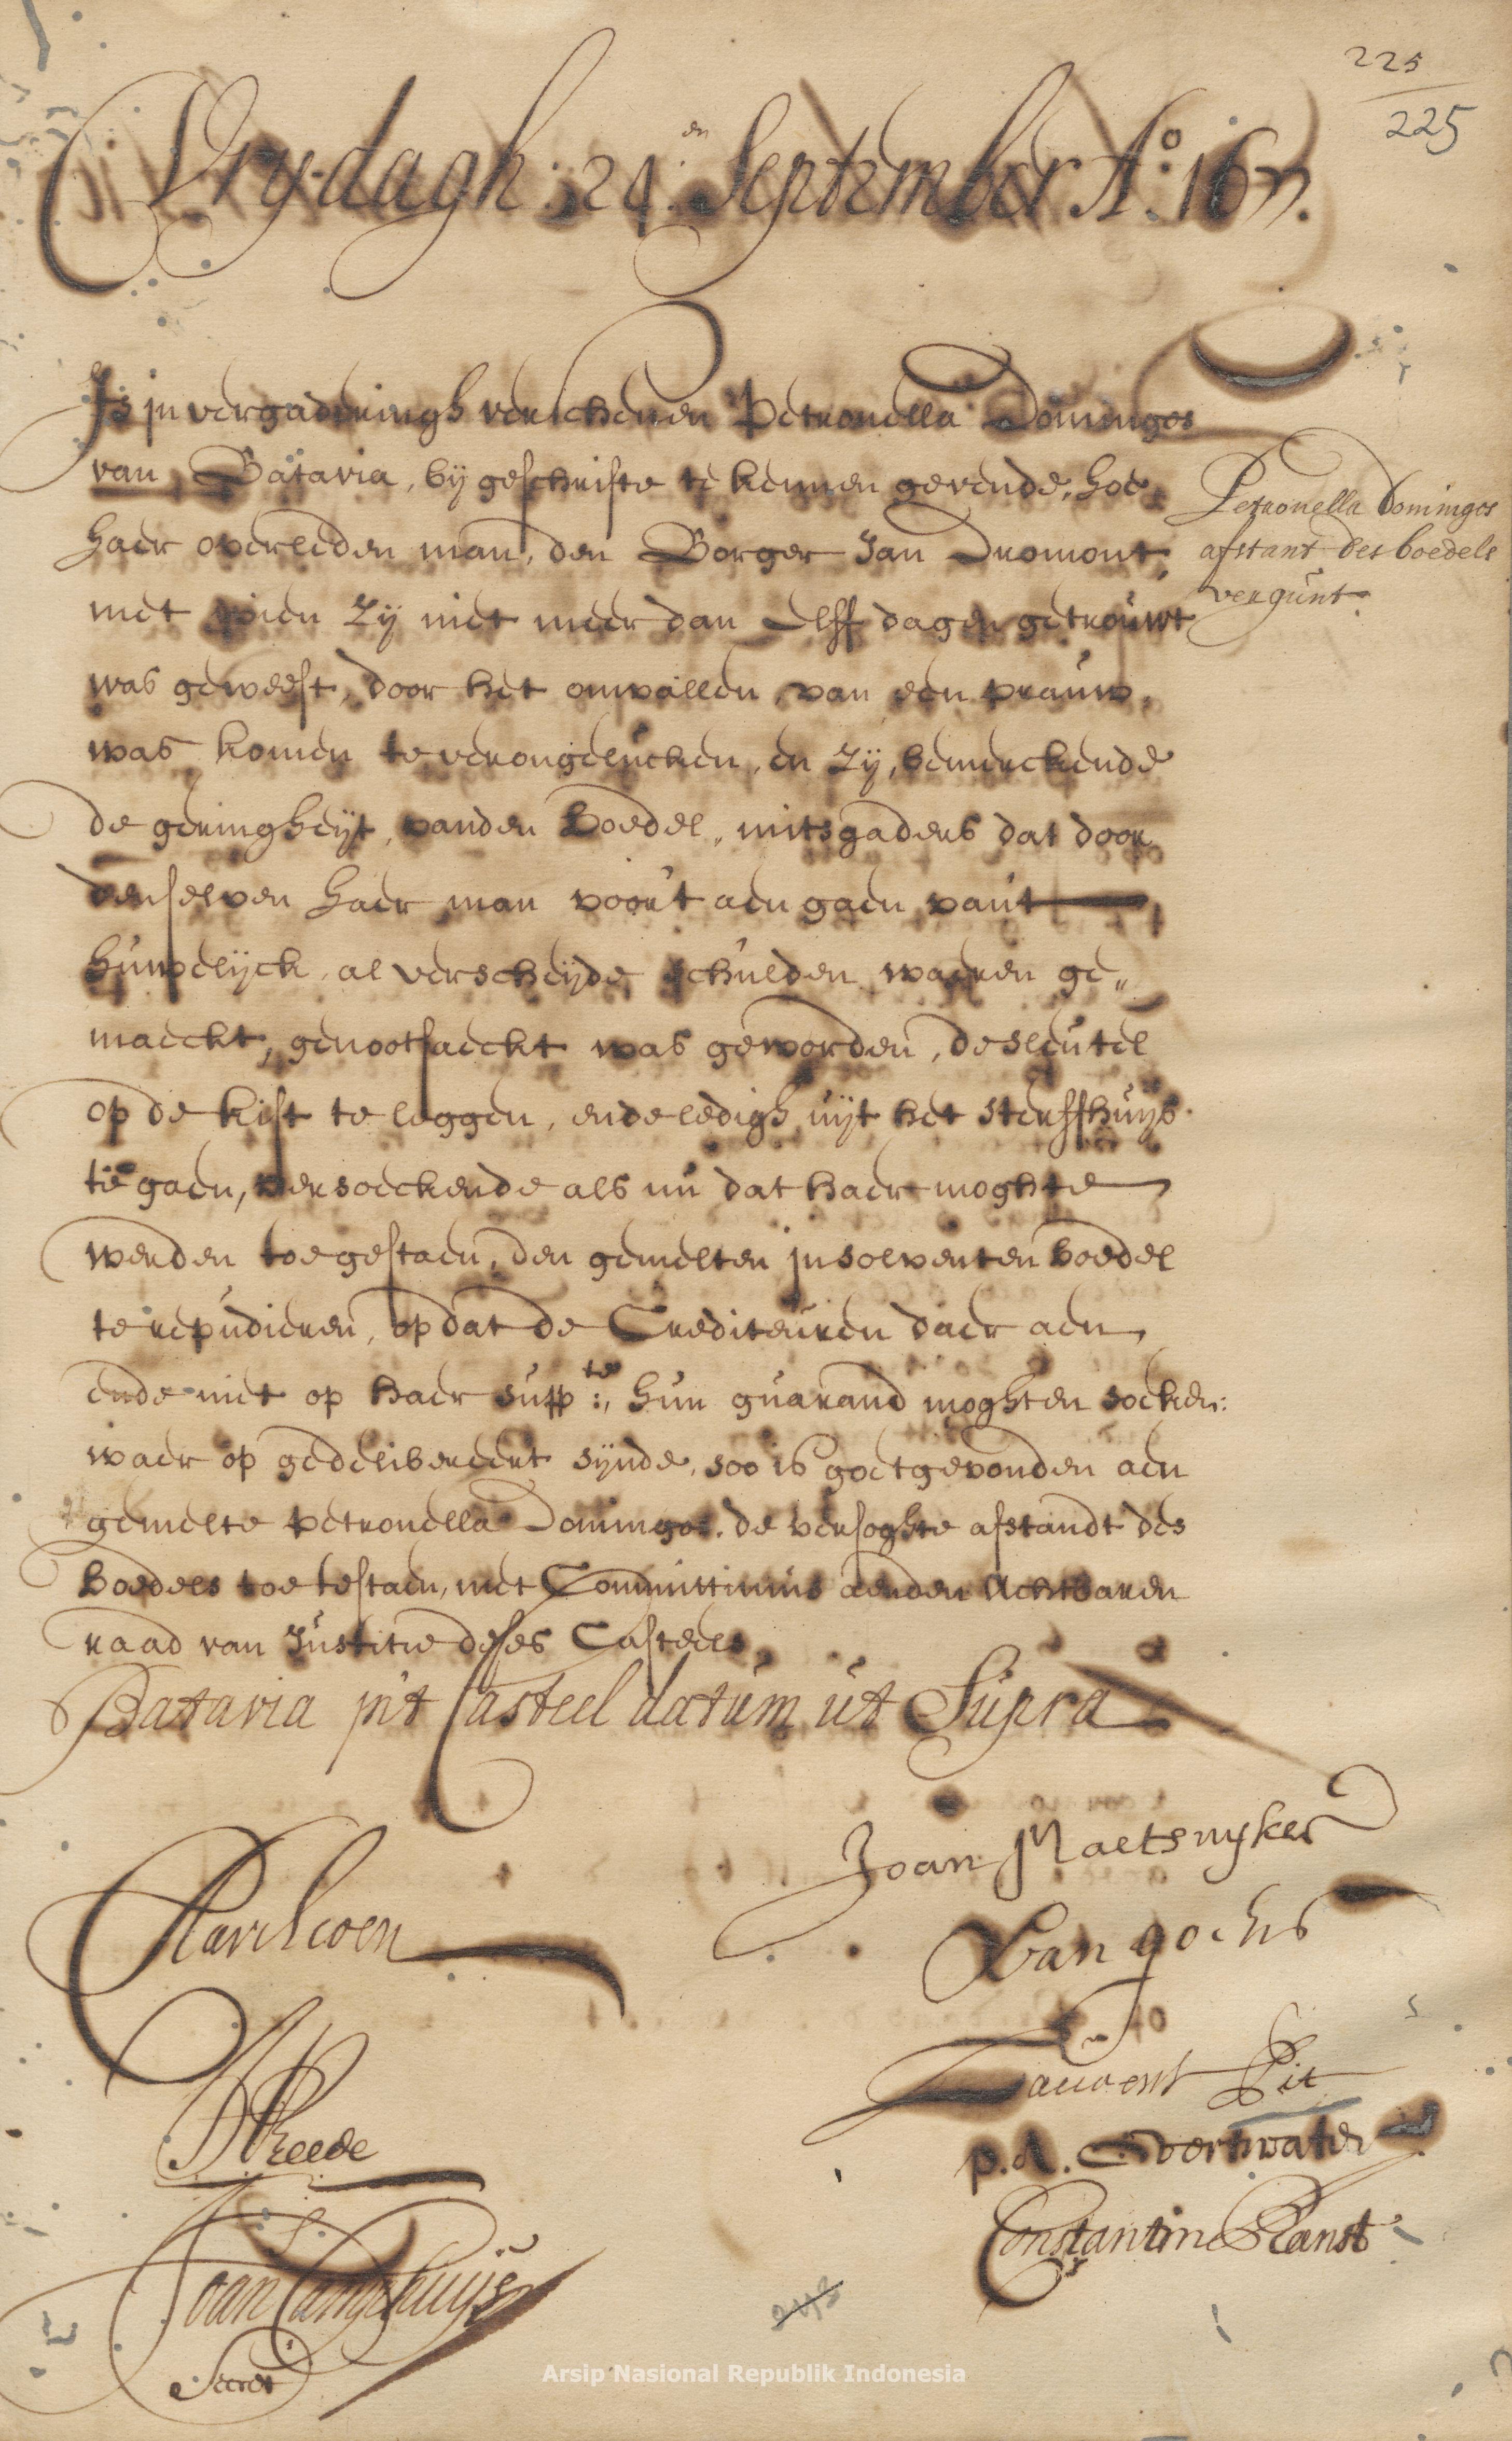 225
225
Vrydagh: 24:en September A:o 1677.
Is in vergaderingh verschenen Petronella Domingos
van Batavia, bij geschrifte te kennen gevende, hoe
haer overleden man, den Borger Jan Dromont,
met wien zij niet meer dan Elff dagen getrouwt
was geweest, door het omvallen van een prauw,
was komen te verongelucken, en zij, bemerckende
de geringheijt, vanden Boedel, mitsgaders dat door
denselven haer man voor't aengaen van't
huwelijck, al verscheijde schulden waeren ge„
maeckt, genootsaeckt was geworden, de sleutel
op de kist te leggen, ende ledigh uijt het sterffhuijs
te gaen, versoeckende als nu dat haer moghte
werden toegestaen, den gemelten insolventen boedel
te repudieren, op dat de Crediteuren daer aen
ende niet op haer supp:te, hun guarand moghten soeken:
waer op gedelibereert sijnde, soo is goetgevonden aen
gemelte Petronella Domingos. de versoghte afstandt des
Boedels toe te staen, met Committimus aenden Achtbaren
raad van Justitie deses Casteels
Petronella Domingos
afstant des boedels
vergunt.
Batavia in't Casteel datum ut Supra
Joan Maetsuyker
Rijcklof
Van goens
Laurens Pit
p. A. Overtwater
Constantin Ranst
Reede
Joan Camphuijs
Secret
Arsip Nasional Republik Indonesia